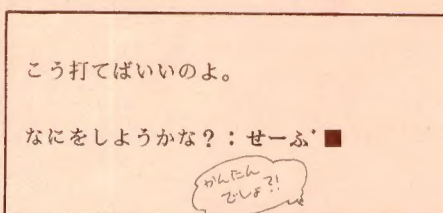 こう打てばいいのよ。
なにをしようかな?:せーぶ゛■
かんたん
でしょ?!